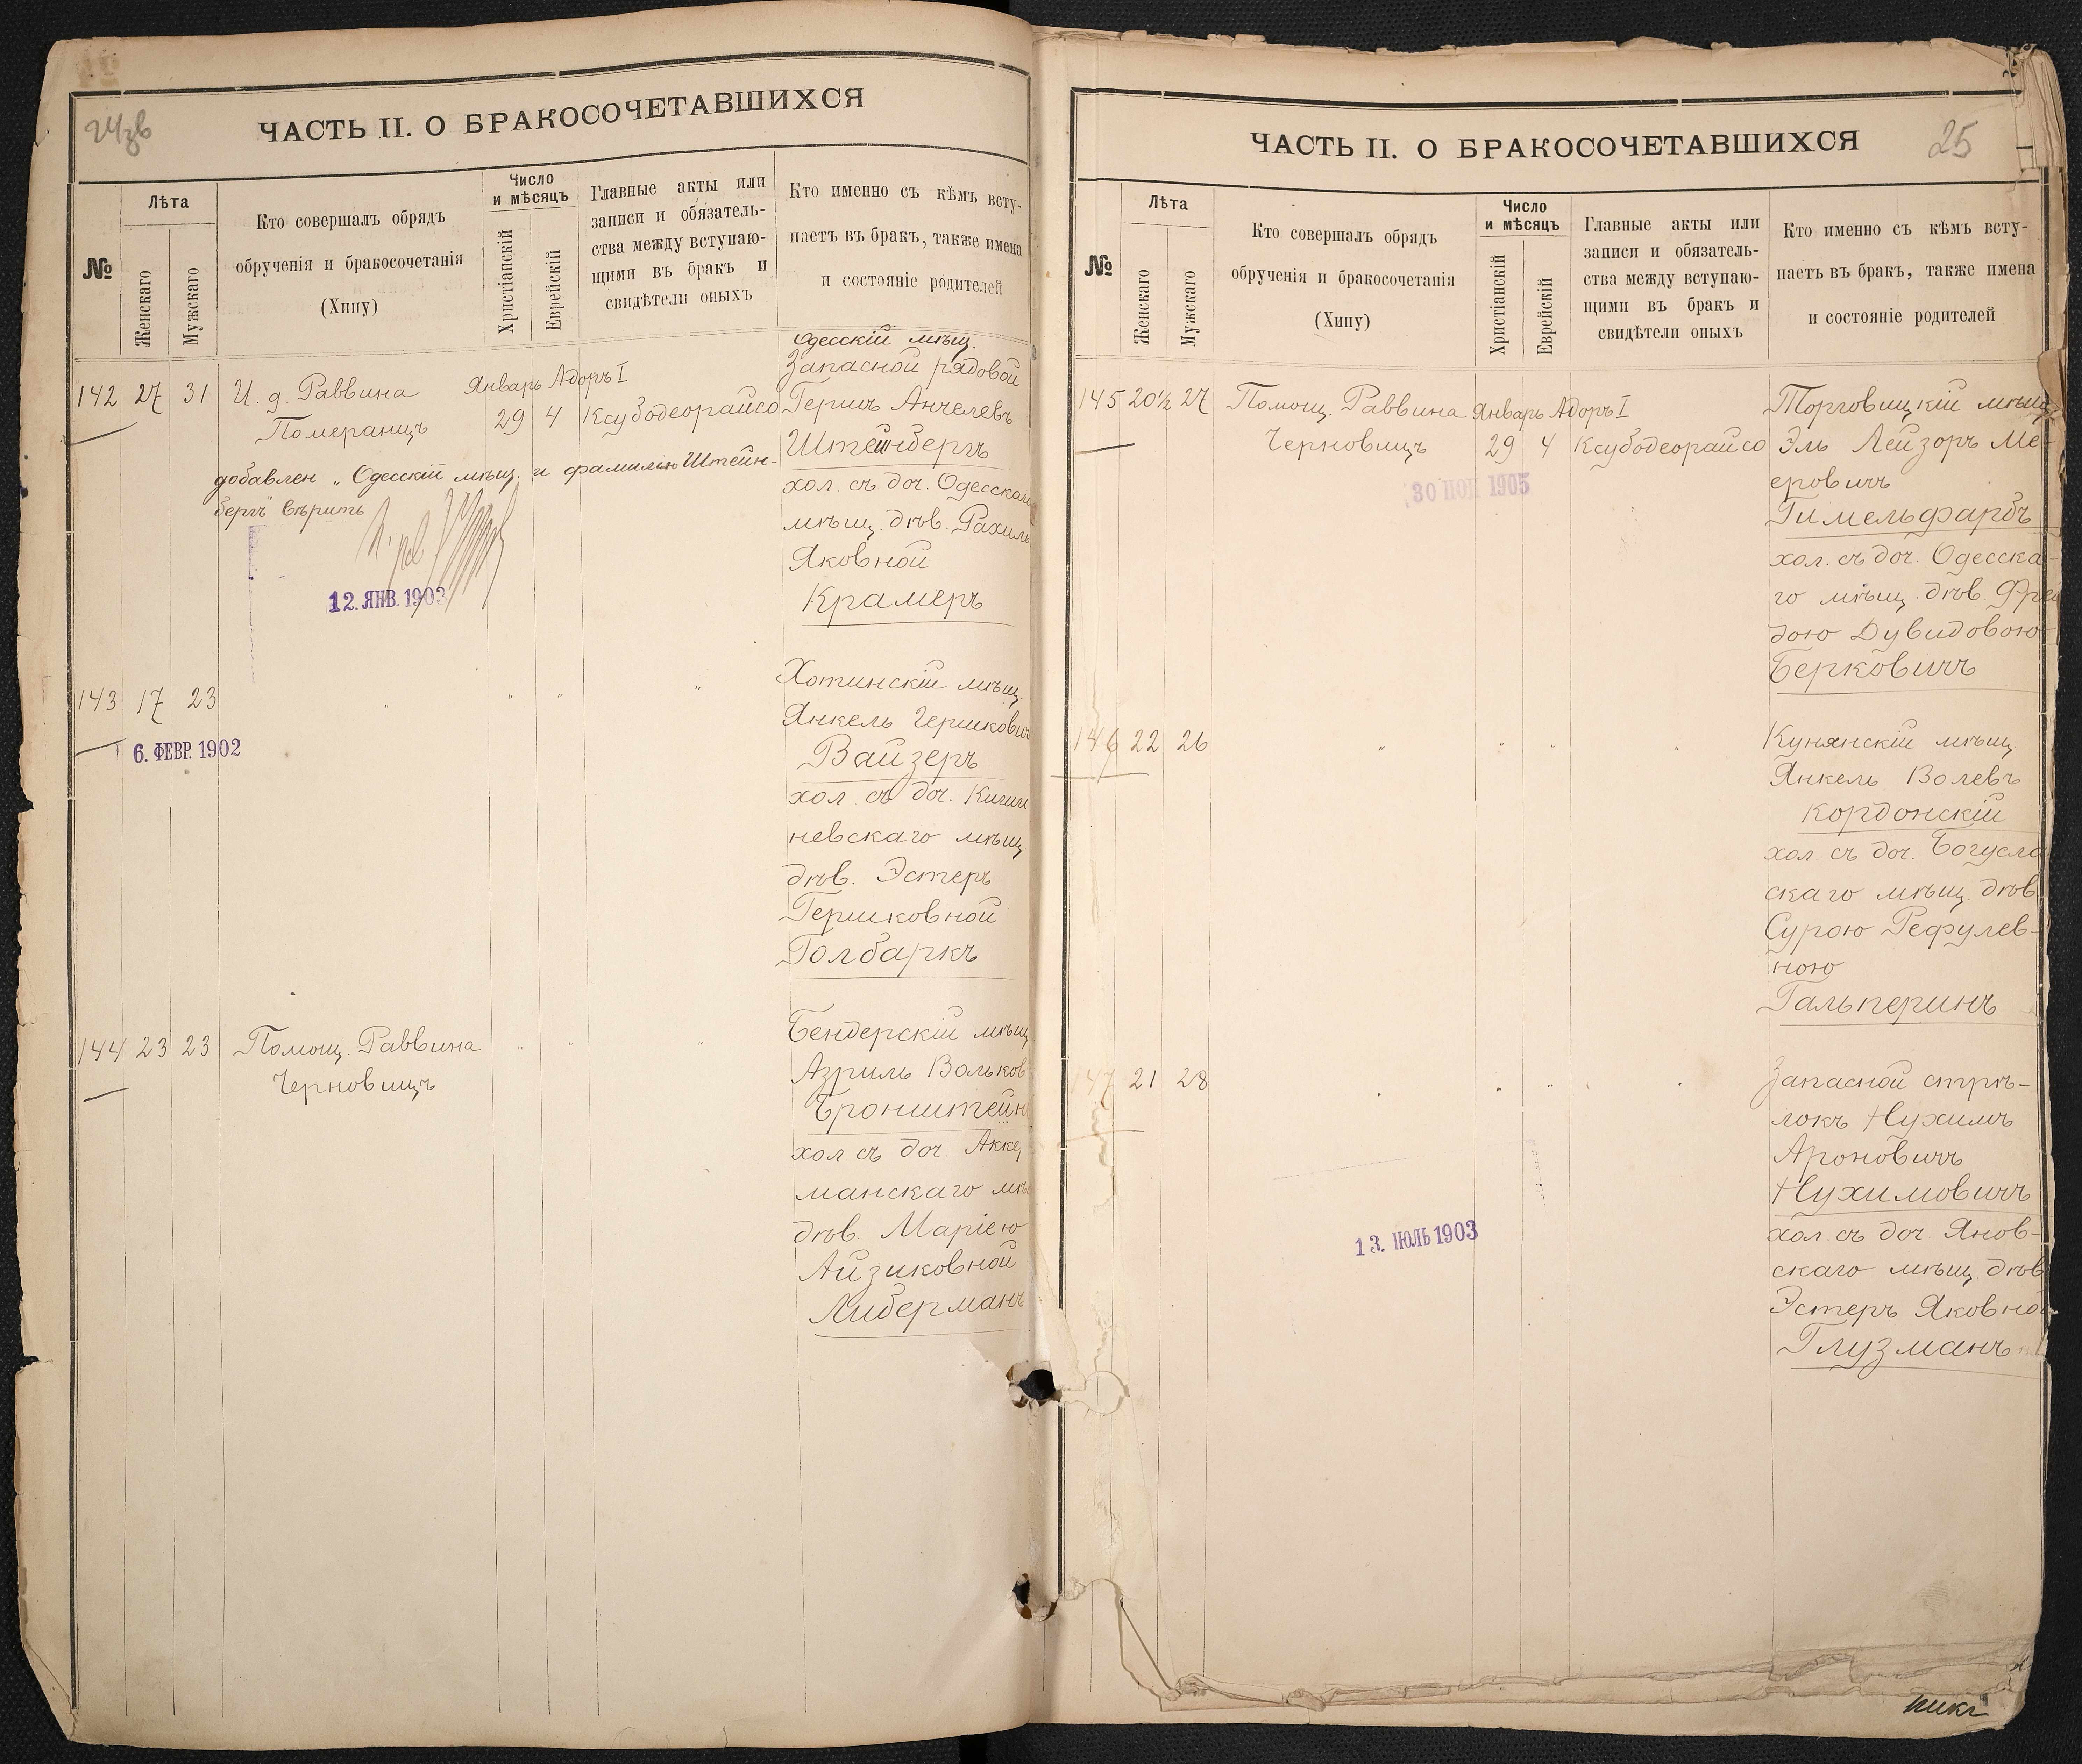 24зв
ЧАСТЬ II. О БРАКОСОЧЕТАВШИХСЯ
№
Лѣта
Женскаго
Мужскаго
Кто совершалъ обрядъ
обрученія и бракосочетанія
(Хипу)
Число
и мѣсяцъ
Христіанскій
Еврейскій
Главные акты или
записи и обязатель-
ства между вступаю-
щими въ бракъ и
свидѣтели оныхъ
Кто именно съ кѣмъ всту-
паетъ въ бракъ, также имена
и состояніе родителей
142 27 31 И. д. Раввина Январь Адоръ I
Померанцъ 29 4 Ксубодеорайсо
добавлен „Одесскій мѣщ. и фамилію Штейн-
бергъ" вѣрить
12. ЯНВ. 1903
Одесскій мѣщ.
Запасной рядовой
Гершъ Анчелевъ
Штейнбергъ
хол. съ доч. Одесскаго
мѣщ. дѣв. Рахиль
Яковной
Крамеръ
143 17 23 " " " "
6. ФЕВР. 1902
Хотинскій мѣщ.
Янкель Гершкович
Вайзеръ
хол. съ доч. Киши
невскаго мѣщ.
дѣв. Эстеръ
Гершковной
Голбаркъ
144 23 23 Помощ. Раввина " " "
Черновицъ
Бендерскій мѣщ
Азриль Вольков
Бронштейн
хол. съ доч. Аккер
манскаго мѣ
дѣв. Маріею
Айзиковной
Либерманъ
25
ЧАСТЬ II. О БРАКОСОЧЕТАВШИХСЯ
№
Лѣта
Женскаго
Мужскаго
Кто совершалъ обрядъ
обрученія и бракосочетанія
(Хипу)
Число
и мѣсяцъ
Христіанскій
Еврейскій
Главные акты или
записи и обязатель-
ства между вступаю-
щими въ бракъ и
свидѣтели оныхъ
Кто именно съ кѣмъ всту-
паетъ въ бракъ, также имена
и состояніе родителей
145 20½ 27 Помощ. Раввина Январь Адоръ I
Черновицъ 29 4 Ксубодеорайсо
1905
Торговицкій мѣщ
Эль Лейзоръ Ме-
еровичъ
Гимельфарбъ
хол. съ доч. Одесска-
го мѣщ. дѣв. Фрей
дою Дувидовою
Берковичъ
146 22 26 " " " "
Кунянскій мѣщ.
Янкель Волевъ
Кордонскій
хол. съ доч. Богусла
скаго мѣщ. дѣв.
Сурою Рефулев-
ною
Гальперинъ
147 21 28 " " " "
13. ІЮЛЬ 1903
Запасной стрѣ-
локъ Нухимъ
Ароновичъ
Нухимовичъ
хол. съ доч. Янов-
скаго мѣщ. дѣв
Эстеръ Яковной
Глузманъ